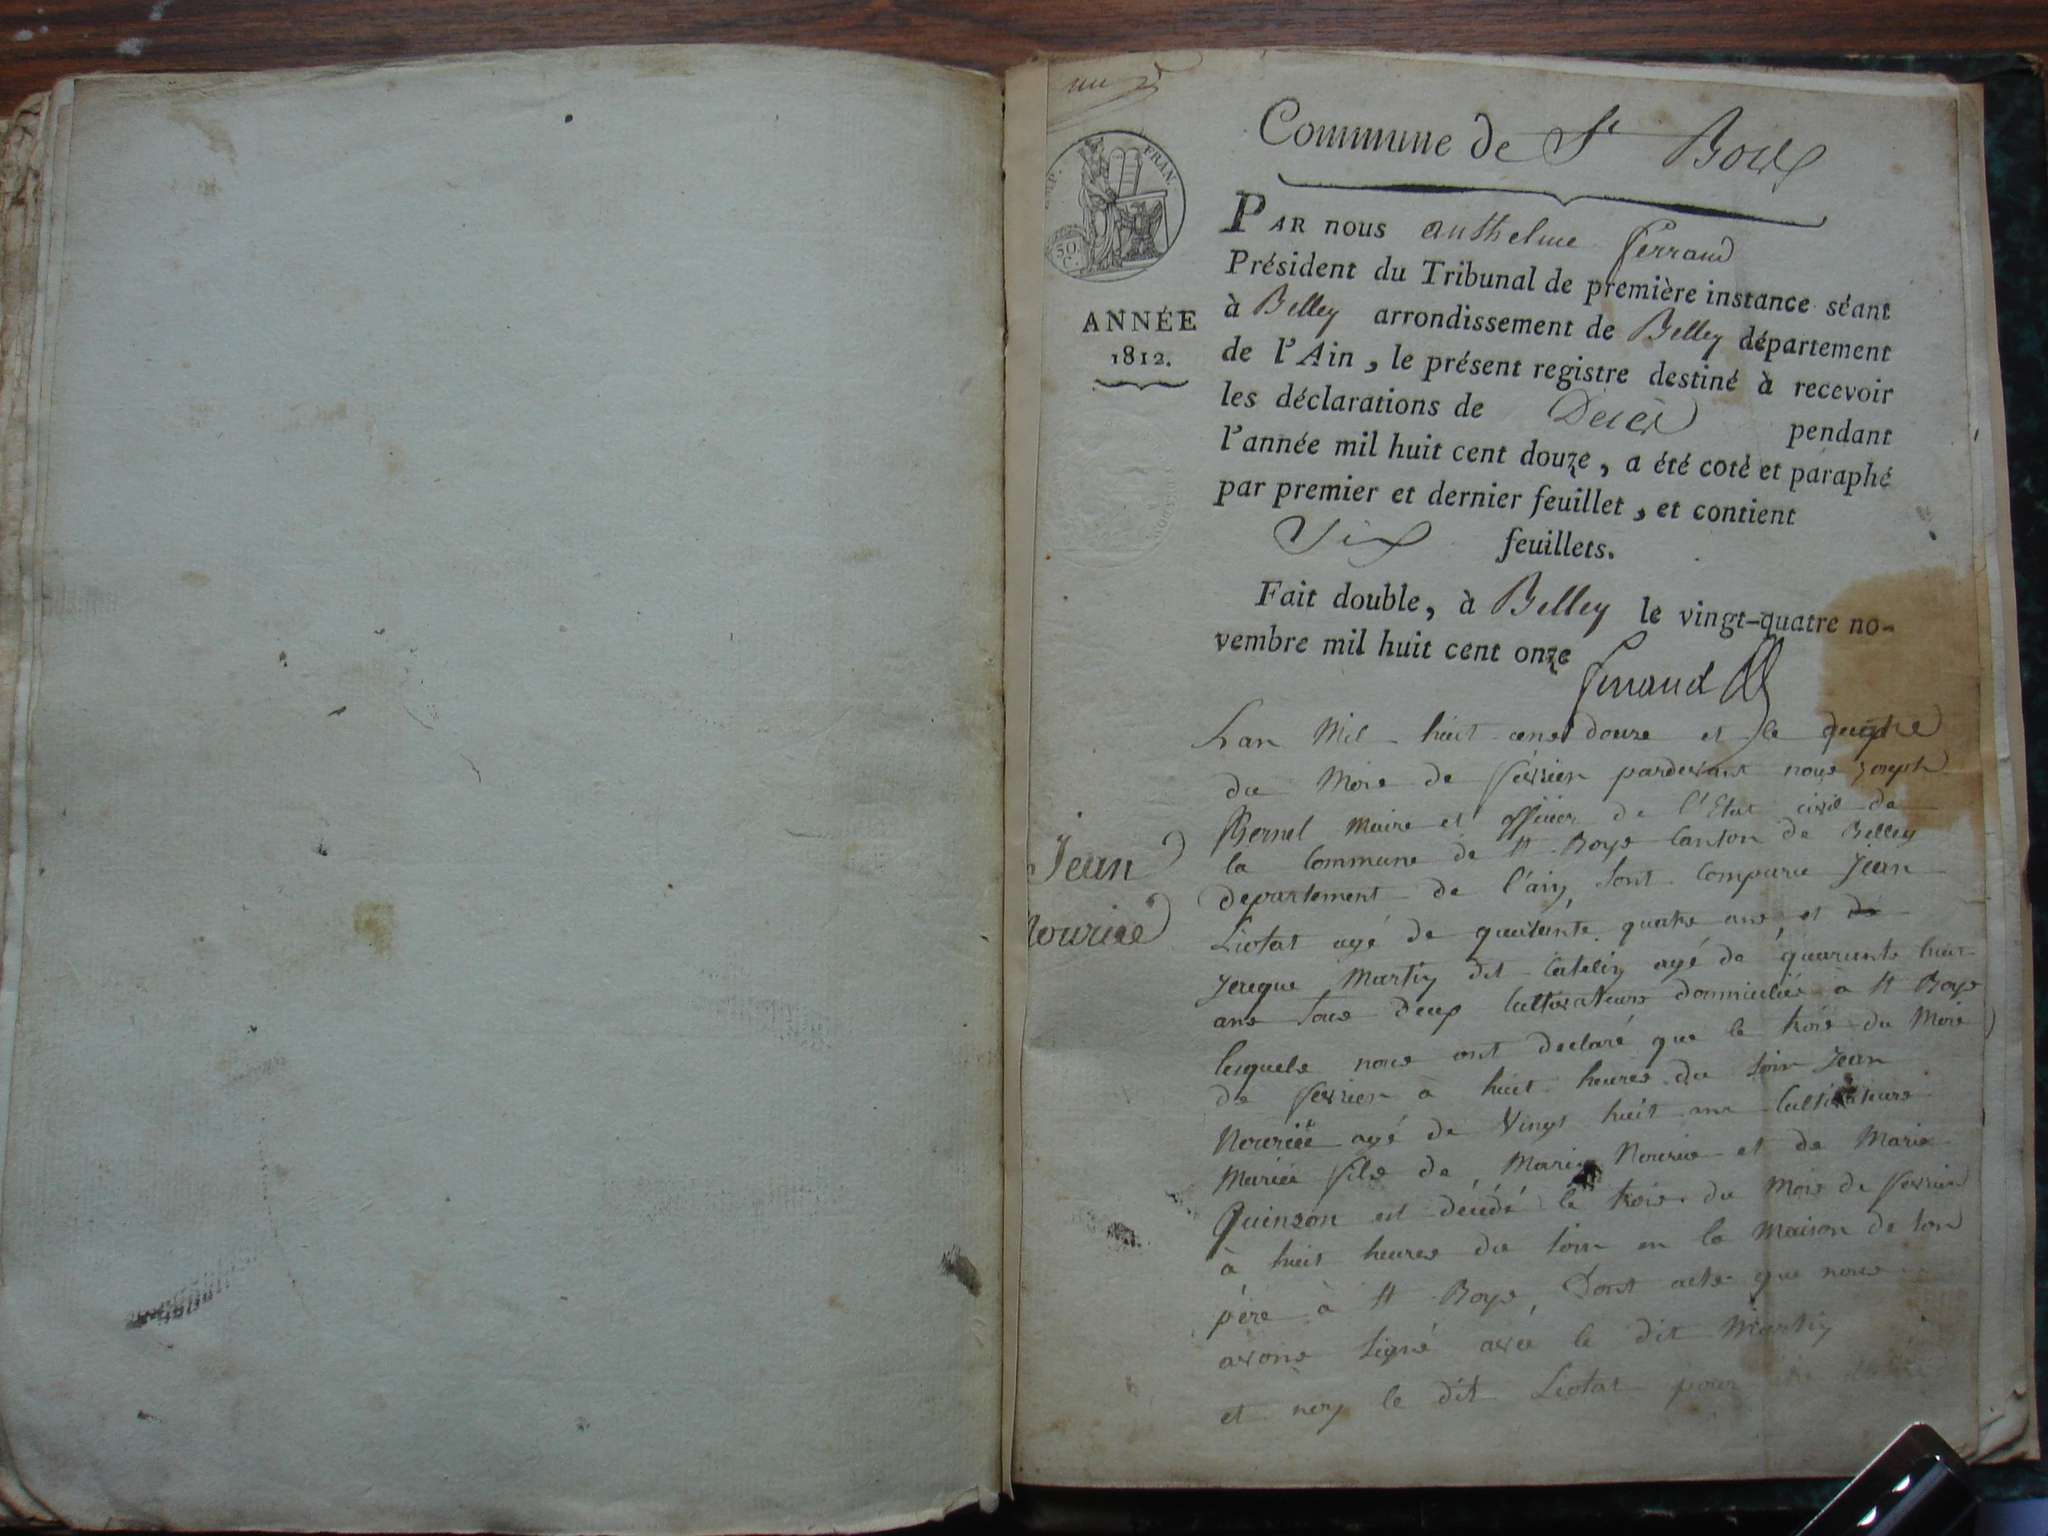 un
Commune de St Bois
EMP. FRAN.
50 C.
PAR nous anthelme ferrand
Président du Tribunal de première instance séant
à Belley arrondissement de Belley département
ANNÉE
1812.
de l'Ain, le présent registre destiné à recevoir
les déclarations de Décès pendant
l'année mil huit cent douze, a été coté et paraphé
par premier et dernier feuillet, et contient
Six feuillets.
Fait double, à Belley le vingt-quatre no-
vembre mil huit cent onze
ferrand
Lan Mil huit cens douze et le
du Mois de fevrier pardevant nous joseph
Bernel Maire et officier de l'Etat civil de
la Commune de St Boys Canton de Belley
departement de l'ain, sont Comparu Jean
Jean
Nouriee
Liotar agé de quarante quatre ans, et de
jereque Martin dit Catelin agé de quarante huit
ans tous deux Cultivateurs domiciliés à St Boys
lesquels nous ont declaré que le trois du Mois
de fevrier à huit heures du soir Jean
Nouriee agé de Vingt huit ans Cultivateurs
Mariée fils de Marin Nouriee et de Marie
Quinson est décédé le trois du Mois de fevrier
à huit heures du soir en la Maison de son
père à St Boys, Dont acte que nous
avons signé avec le dit Martin
et non le dit Liotar pour